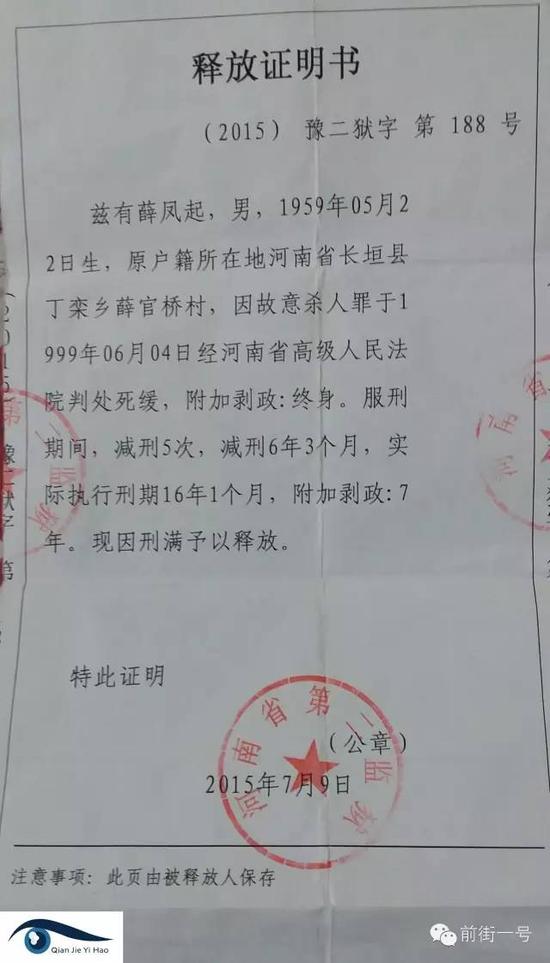 释放证明书
（2015） 豫二狱字 第 188 号
兹有薛凤起，男，1959年05月2
2日生，原户籍所在地河南省长垣县
丁栾乡薛官桥村，因故意杀人罪于1
999年06月04日经河南省高级人民法
院判处死缓，附加剥政:终身。服刑
期间，减刑5次，减刑6年3个月，实
际执行刑期16年1个月，附加剥政:7
年。现因刑满予以释放。
特此证明
河南省第二监狱
（公章）
2015年7月9日
注意事项：此页由被释放人保存
Qian Jie Yi Hao
前街一号